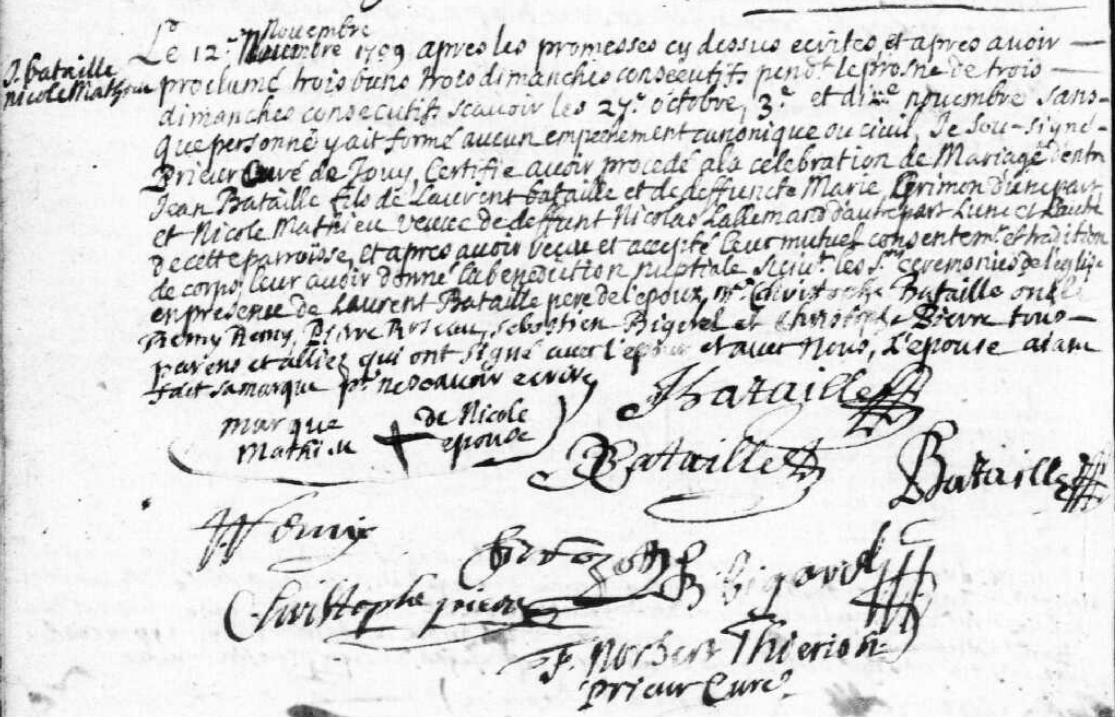 J. bataille
nicole Mathieu
Novembre
Le 12e Novembre 1709 apres les promesses cy dessus ecrites, et apres avoir
proclamé trois bans trois dimanches consecutifs pendt. le prosne de trois
dimanches consecutifs scavoir les 27e. octobre, 3e. et dixe. novembre sans
que personne y ait formé aucun empechement canonique ou civil, Je sou-signé
Prieur Curé de Jouy, Certifie avoir procedé a la celebration de Mariage d'entre
Jean Bataille fils de Laurent bataille et de deffuncte Marie Grimon d'une part
et Nicole Mathieu veuve de deffunt Nicolas Lallemand d'autre part L'une et L'autre
de cette parroisse, et apres avoir veceu et accepté leur mutuel consentemt. et tradition
de corps leur avoir donné la benediction nuptiale suivt. les Stes ceremonies de l'eglise
en presence de Laurent Bataille pere de l'epoux, Mre. Christophe Bataille oncle
Remy Remy, Pierre sebastien Bigerel et Christophe Pierre tous
parens et alliez qui ont signé avec l'epoux et avec Nous, L'epouse aiant
fait sa marque pr. ne scavoir ecrire
marque de Nicole
Mathieu epouse
JBataille
Bataille
Bataille
Remy
Bigerel
Christophe pierre
F. Norbert Thierion
prieur Curé